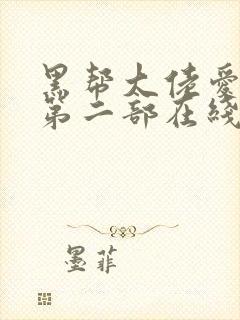 黑帮大佬爱
第二部在线
墨菲